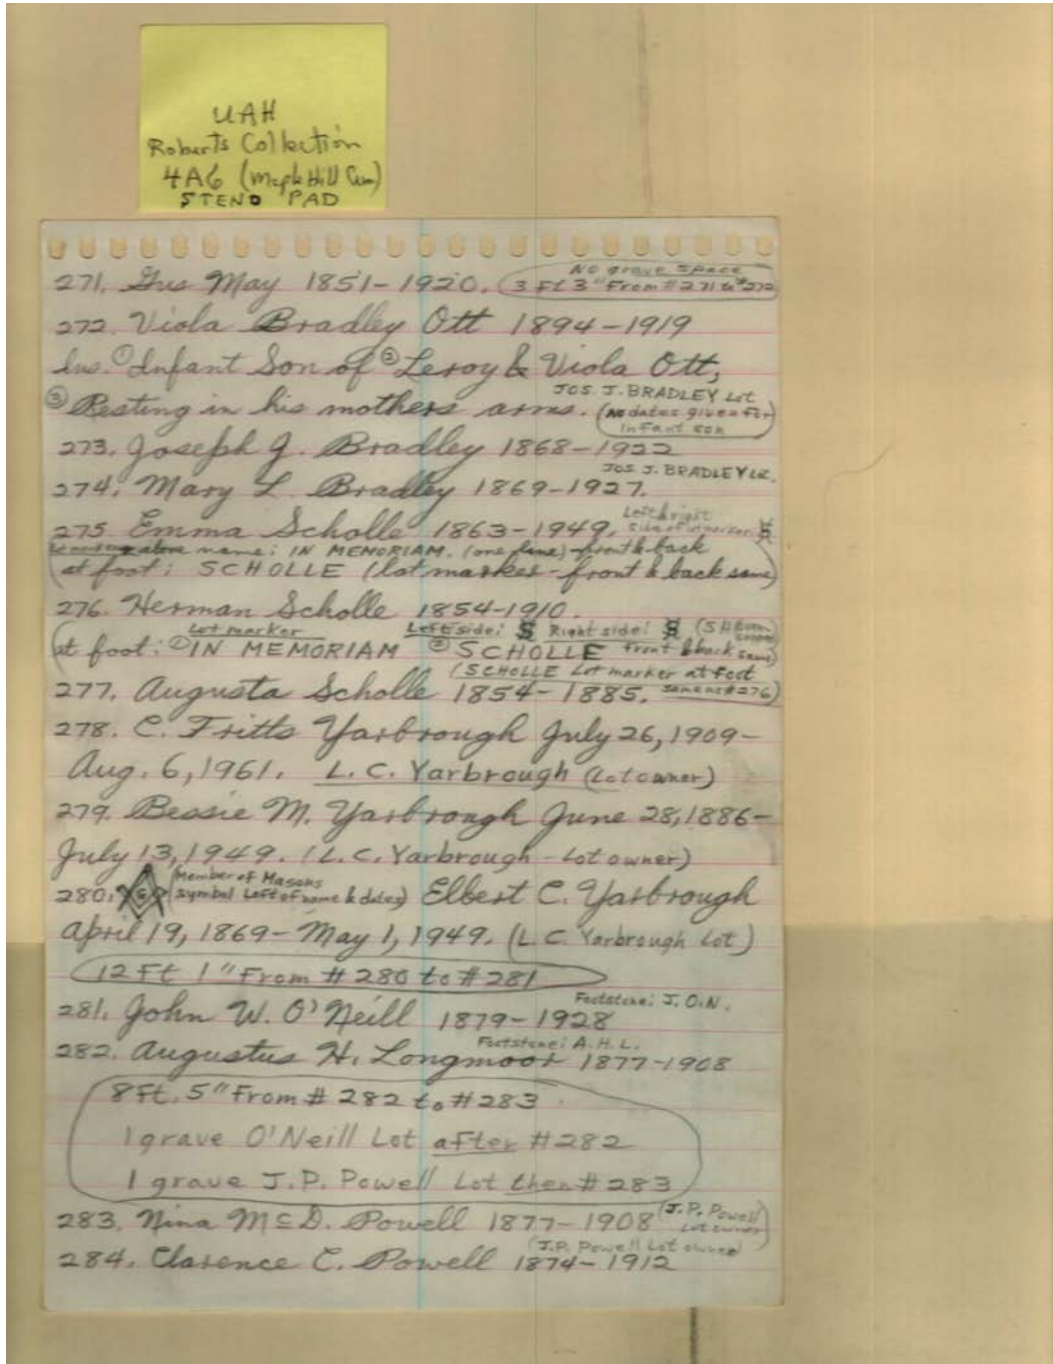 UAH
Roberts Collection
4A6 (Maple Hill Cem)
STENO PAD
No grave space
271. Gus May 1851-1920. 3 Ft 3" From #271 to #272
272. Viola Bradley Ott 1894-1919
Ins. ① Infant Son of ② Leroy & Viola Ott,
JOS. J. BRADLEY Lot
③ Resting in his mothers arms. (No dates given for
infant son
273. Joseph J. Bradley 1868-1922
JOS. J. BRADLEY
274. Mary L. Bradley 1869-1927.
Left & right
275 Emma Scholle 1863-1949. side of marker S
above name: IN MEMORIAM. (one line) - front & back
at foot: SCHOLLE (lot marker - front & back same)
276. Herman Scholle 1854-1910.
Lot marker Left side: S Right side: S
at foot: ① IN MEMORIAM ② SCHOLLE front & back same)
(SCHOLLE Lot marker at foot
277. Augusta Scholle 1854-1885. same as #276)
278. C. Fritts Yarbrough July 26, 1909-
Aug. 6, 1961. L. C. Yarbrough (Lot owner)
279. Bessie M. Yarbrough June 28, 1886-
July 13, 1949. (L. C. Yarbrough - Lot owner)
(Member of Masons
280. G symbol Left of name & dates) Elbert C. Yarbrough
April 19, 1869-May 1, 1949. (L. C. Yarbrough Lot)
12 Ft 1" From #280 to #281
Footstone: J. O'N.
281. John W. O'Neill 1879-1928
Footstone: A. H. L.
282. Augustus H. Longmoor 1877-1908
8 Ft. 5" From #282 to #283
1 grave O'Neill Lot after #282
1 grave J. P. Powell Lot then #283
283. Nina McD. Powell 1877-1908 (J. P. Powell
Lot owner)
(J.P. Powell Lot owner)
284. Clarence C. Powell 1874-1912